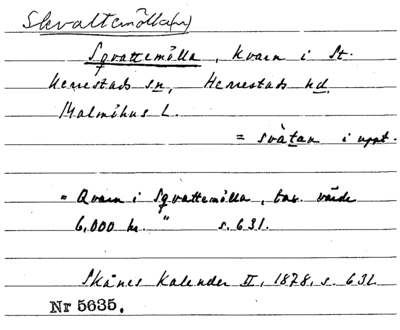 Skvaltemölla(n)
Sqvattemölla, Kvarn i St.
Herrestads sn, Herrestads hd.
Malmöhus L.
= svåtan i uppt.
" Qvarn i Sqvattemölla, tax. värde
6,000 kr. " s. 631.
Skånes Kalender II, 1878, s. 631
Nr 5635.